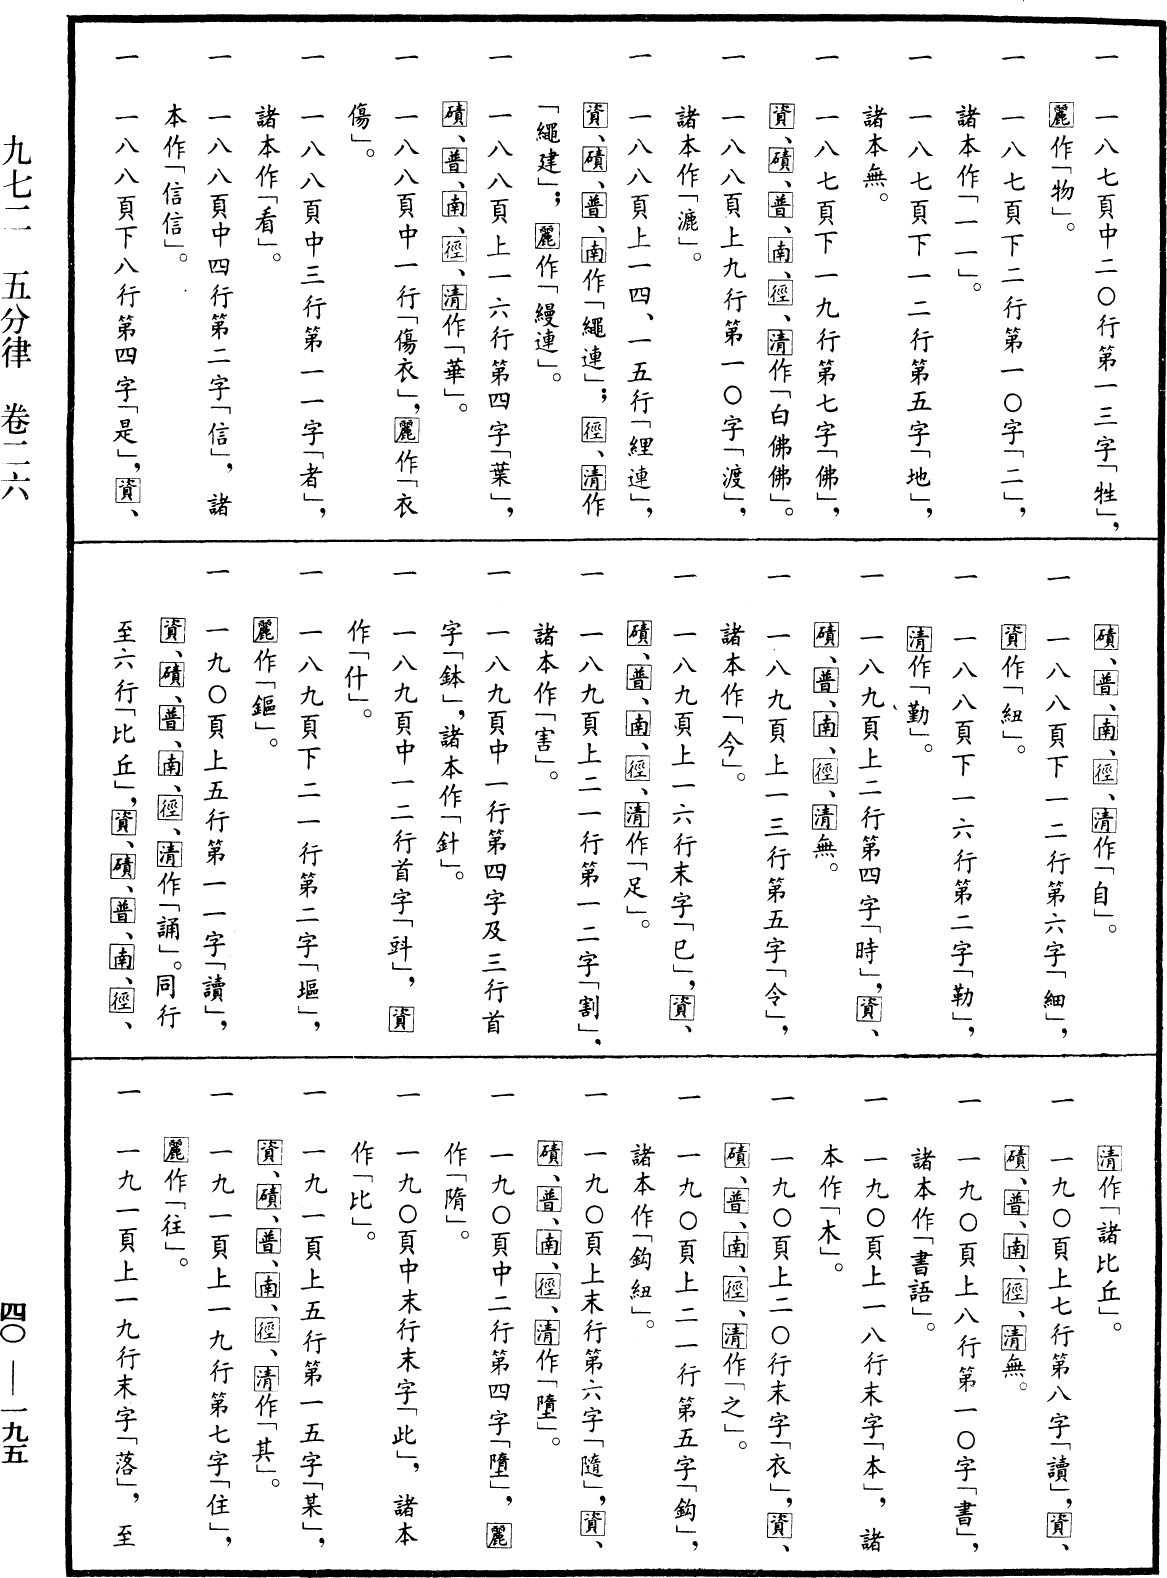 一　一八七頁中二〇行第一三字「牲」，
麗作「物」。
一　一八七頁下二行第一〇字「二」，
諸本作「一一」。
一　一八七頁下一二行第五字「地」，
諸本無。
一　一八七頁下一九行第七字「佛」，
資、磧、普、南、徑、清作「白佛佛」。
一　一八八頁上九行第一〇字「渡」，
諸本作「漉」。
一　一八八頁上一四、一五行「縄連」，
資、磧、普、南作「繩連」；徑、清作
「繩建」；麗作「縵連」。
一　一八八頁上一六行第四字「葉」，
磧、普、南、徑、清作「華」。
一　一八八頁中一行「傷衣」，麗作「衣
傷」。
一　一八八頁中三行第一一字「者」，
諸本作「看」。
一　一八八頁中四行第二字「信」，諸
本作「信信」。
一　一八八頁下八行第四字「是」，資、
磧、普、南、徑、清作「自」。
一　一八八頁下一二行第六字「細」，
資作「紐」。
一　一八八頁下一六行第二字「勒」，
清作「勤」。
一　一八九頁上二行第四字「時」，資、
磧、普、南、徑、清無。
一　一八九頁上一三行第五字「令」，
諸本作「今」。
一　一八九頁上一六行末字「已」，資、
磧、普、南、徑、清作「足」。
一　一八九頁上二一行第一二字「割」，
諸本作「害」。
一　一八九頁中一行第四字及三行首
字「鉢」，諸本作「針」。
一　一八九頁中一二行首字「㪷」，資
作「什」。
一　一八九頁下二一行第二字「塸」，
麗作「鏂」。
一　一九〇頁上五行第一一字「讀」，
資、磧、普、南、徑、清作「誦」。同行
至六行「比丘」，資、磧、普、南、徑、
清作「諸比丘」。
一　一九〇頁上七行第八字「讀」，資、
磧、普、南、徑、清無。
一　一九〇頁上八行第一〇字「書」，
諸本作「書語」。
一　一九〇頁上一八行末字「本」，諸
本作「木」。
一　一九〇頁上二〇行末字「衣」，資、
磧、普、南、徑、清作「之」。
一　一九〇頁上二一行第五字「鈎」，
諸本作「鈎紐」。
一　一九〇頁上末行第六字「隨」，資、
磧、普、南、徑、清作「墮」。
一　一九〇頁中二行第四字「墮」，麗
作「隋」。
一　一九〇頁中末行末字「此」，諸本
作「比」。
一　一九一頁上五行第一五字「某」，
資、磧、普、南、徑、清作「其」。
一　一九一頁上一九行第七字「住」，
麗作「往」。
一　一九一頁上一九行末字「落」，至
九七二　五分律　卷二六
四〇—一九五